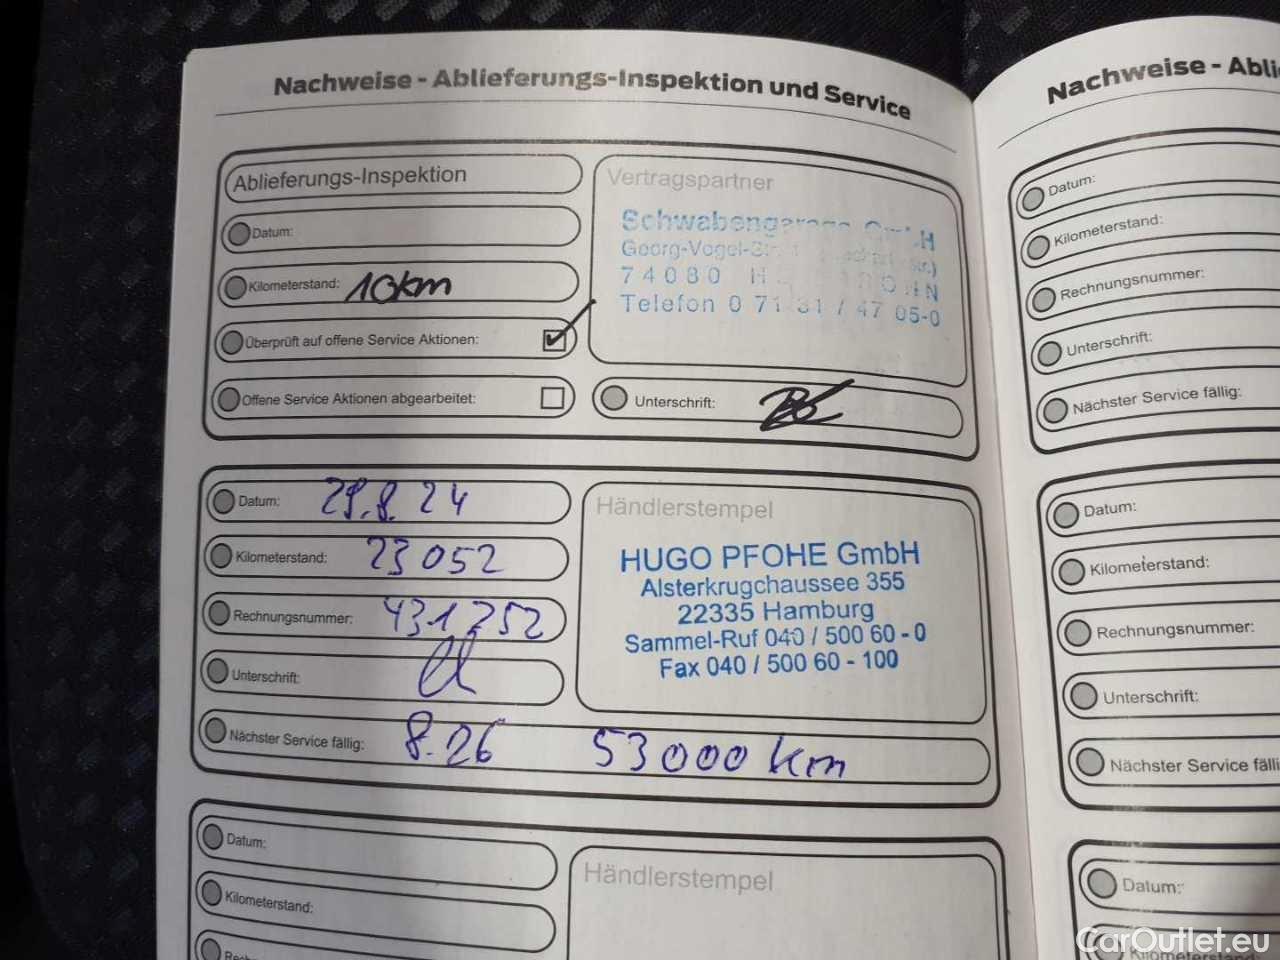 Nachweise - Ablieferungs-Inspektion und Service
Ablieferungs-Inspektion
Datum:
Kilometerstand: 10km
Überprüft auf offene Service Aktionen:
Offene Service Aktionen abgearbeitet:
Vertragspartner
Schwabengarage GmbH
Georg-Vogel-
74080
Telefon 0 71 31 / 47 05-0
Unterschrift:
Datum: 29.8.24
Kilometerstand: 23 052
Rechnungsnummer: 431252
Unterschrift:
Nächster Service fällig: 8.26 53000 km
Händlerstempel
HUGO PFOHE GmbH
Alsterkrugchaussee 355
22335 Hamburg
Sammel-Ruf 040 / 500 60 - 0
Fax 040 / 500 60 - 100
Datum:
Kilometerstand:
Händlerstempel
Nachweise - Abli
Datum:
Kilometerstand:
Rechnungsnummer:
Unterschrift:
Nächster Service fällig:
Datum:
Kilometerstand:
Rechnungsnummer:
Unterschrift:
Nächster Service fälli
Datum:
Kilometerstand:
CarOutlet.eu